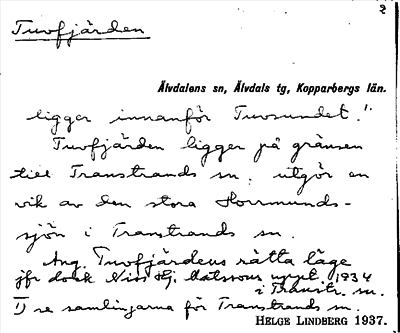 2
Tuvfjärden
Älvdalens sn, Älvdals tg, Kopparbergs län.
ligger innanför Tuvsundet."
Tuvfjärden ligger på gränsen
till Transtrands sn, utgör en
vik av den stora Horrmunds-
sjön i Transtrands sn.
Ang. Tuvfjärdens rätta läge
jfr dock Niss Hj. Matssons uppt. 1934
i Transtr. sn.
1) se samlingarna för Transtrands sn.
HELGE LINDBERG 1937.